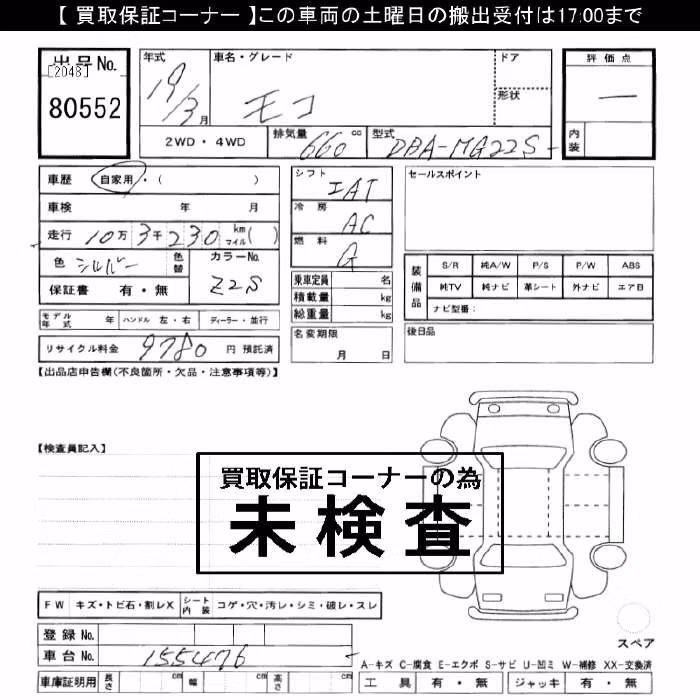 【 買取保証コーナー 】この車両の土曜日の搬出受付は17:00まで
出品No.
[2048]
80552
年式
19/3月
車名・グレード
モコ
ドア
形状
評価点
—
内装
2WD・4WD
排気量 660 cc
型式 DBA-MG22S-
車歴 自家用・( )
車検 年 月
走行 10万3千230 km マイル( )
色 シルバー 色替
カラーNo. Z2S
保証書 有・無
モデル年式 年 ハンドル 左・右 ディーラー・並行
リサイクル料金 9780 円 預託済
シフト IAT
冷房 AC
燃料 G
乗車定員 名
積載量 kg
総重量 kg
名変期限 月 日
セールスポイント
装備品
S/R 純A/W P/S P/W ABS
純TV 純ナビ 革シート 外ナビ エアB
ナビ型番:
後日品
【出品店申告欄(不良箇所・欠品・注意事項等)】
【検査員記入】
買取保証コーナーの為
未検査
FW キズ・トビ石・割レX シート内装 コゲ・穴・汚レ・シミ・破レ・スレ
登録No.
車台No. 155476
車庫証明用 長さ cm 幅 cm 高さ cm
スペア
A-キズ C-腐食 E-エクボ S-サビ U-凹ミ W-補修 XX-交換済
工具 有・無 ジャッキ 有・無